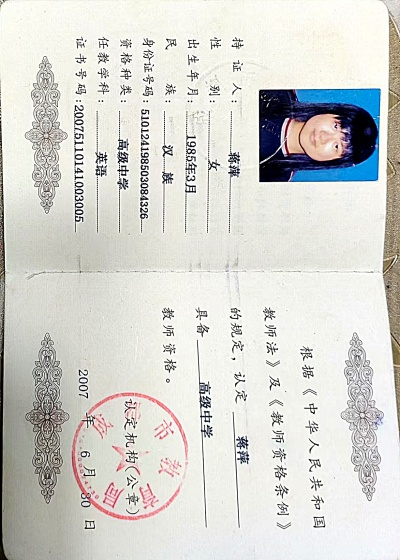 持证人：蒋萍
性别：女
出生年月：1985年3月
民族：汉族
身份证号码：510124198503084326
资格种类：高级中学
任教学科：英语
证书号码：20075110141003005
根据《中华人民共和国
教师法》及《教师资格条例》
的规定，认定 蒋萍
具备 高级中学
教师资格。
认定机构(公章)
2007 年 6 月 30 日
市教育局